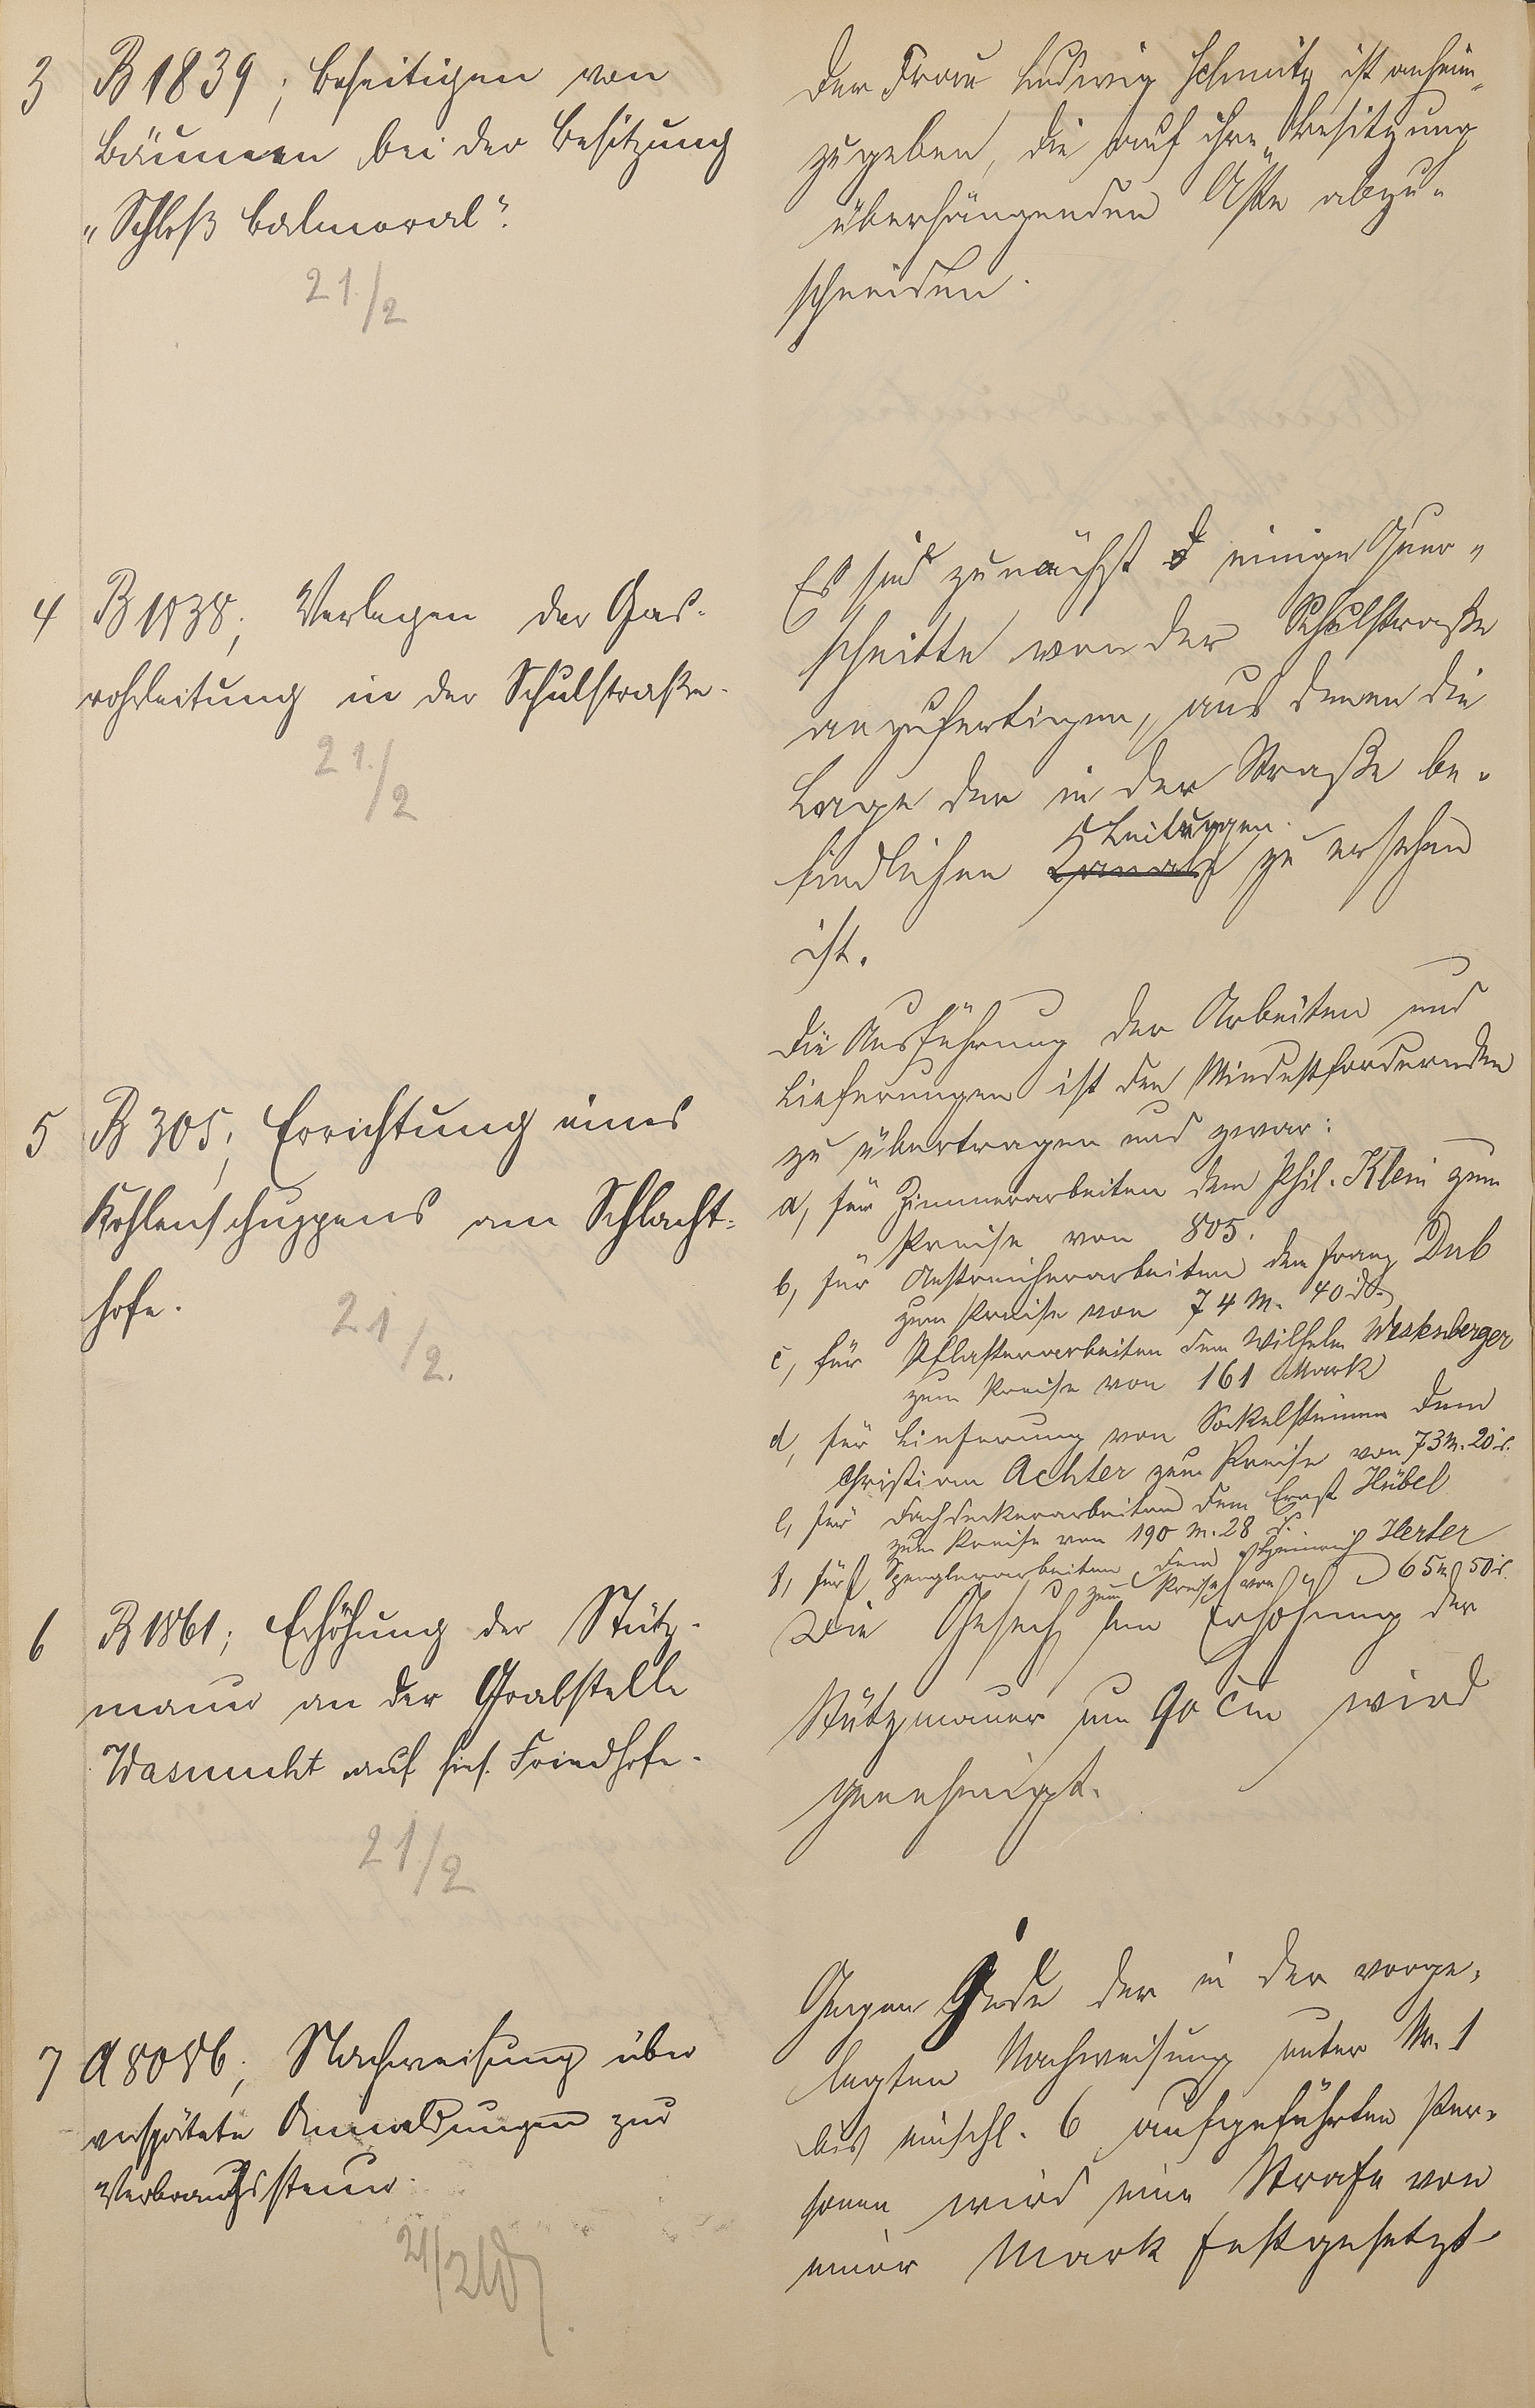 3 B 1839; Beseitigen von
Bäumen bei der Besitzung
„Schloß Balmoral".
21./2
Der Frau Ludwig Schmitz ist anheim-
zugeben, die auf ihre Besitzung
überhängenden Äste abzu-
schneiden.
4 B 1838; Verlegen der Gas-
rohrleitung in der Schulstraße.
21./2
Es sind zunächst einige Quer-
schnitte von der Schulstraße
anzufertigen, aus denen die
Lage der in der Straße be-
Leitungen
findlichen Kanals zu ersehen
ist.
5 B 305; Errichtung eines
Kohlenschuppens am Schlacht-
hofe.
21/2.
Die Ausführung der Arbeiten und
Lieferungen ist den Mindestfordernden
zu übertragen und zwar:
a, für Zimmerarbeiten dem Phil. Klein zum
Preise von 805.
b, für Anstreicherarbeiten dem Franz Dub
zum Preise von 74 M. 40 d.
c, für Pflasterarbeiten dem Wilhelm
zum Preise von 161 Mark
d, für Lieferung von Sockelsteinen dem
Christian Achter zum Preise von 73 M. 20 d.
e, für Dachdeckerarbeiten dem Ernst Hübel
zum Preise von 190 M. 28 d.
f, für Spenglerarbeiten dem Heinrich Herter
zum Preise von 65 M 50 d.
6 B 1861; Erhöhung der Stütz-
mauer an der Grabstelle
Wasmuht auf hies. Friedhofe.
21/2
Die Gesuch um Erhöhung der
Stützmauer um 90 cm wird
genehmigt.
7 A 8086; Nachweisung über
verspätete Anmeldungen zur
Verbrauchssteuer.
21/2
Gegen Jede der in der vorge-
legten Nachweisung unter Nr. 1
bis einschl. 6 aufgeführten Per-
sonen wird eine Strafe von
einer Mark festgesetzt.